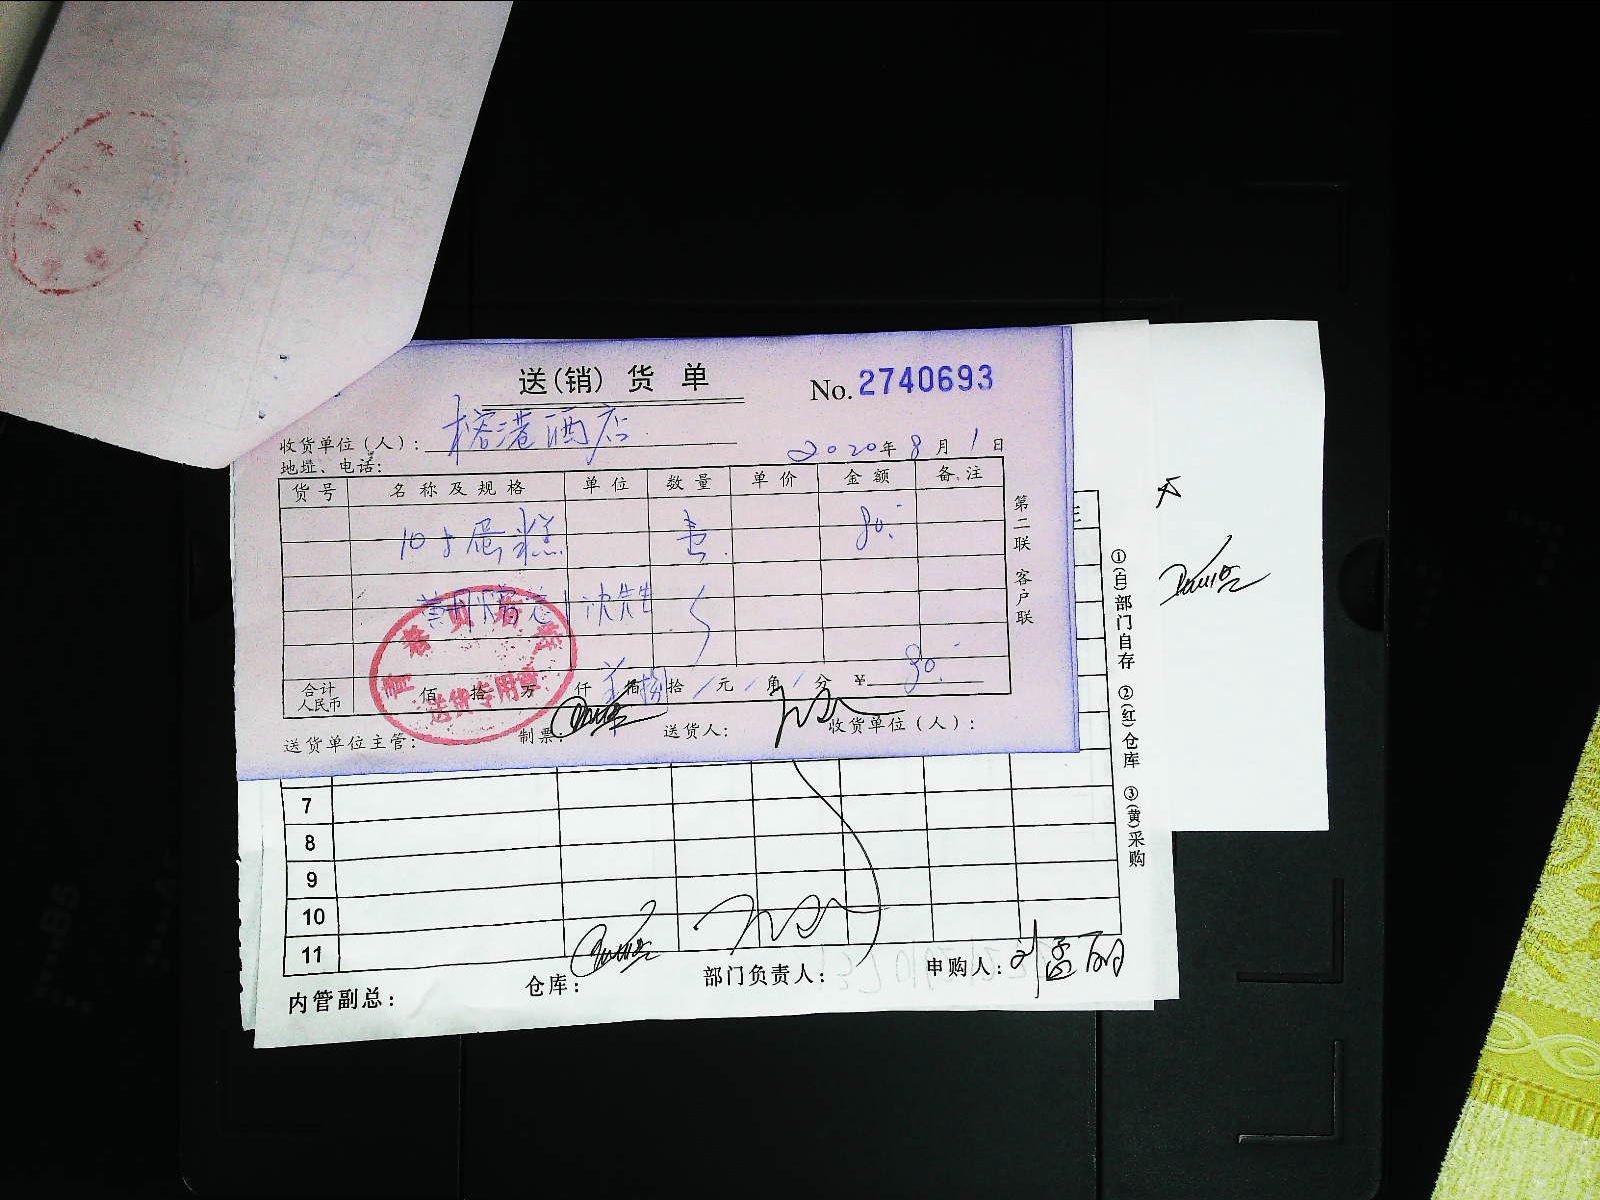 送(销)货单
No. 2740693
收货单位(人): 榕港酒店
2020年8月1日
地址、电话:
货号 名称及规格 单位 数量 单价 金额 备注
10寸蛋糕 80.-
沈先生
合计人民币 佰 拾 万 仟 佰 捌拾 / 元 / 角 / 分 ¥ 80.-
送货单位主管: 制票: 送货人: 收货单位(人):
第二联 客户联
送货专用章
7
8
9
10
11
内管副总: 仓库: 部门负责人: 申购人: 刘孟丽
①(白)部门自存 ②(红)仓库 ③(黄)采购